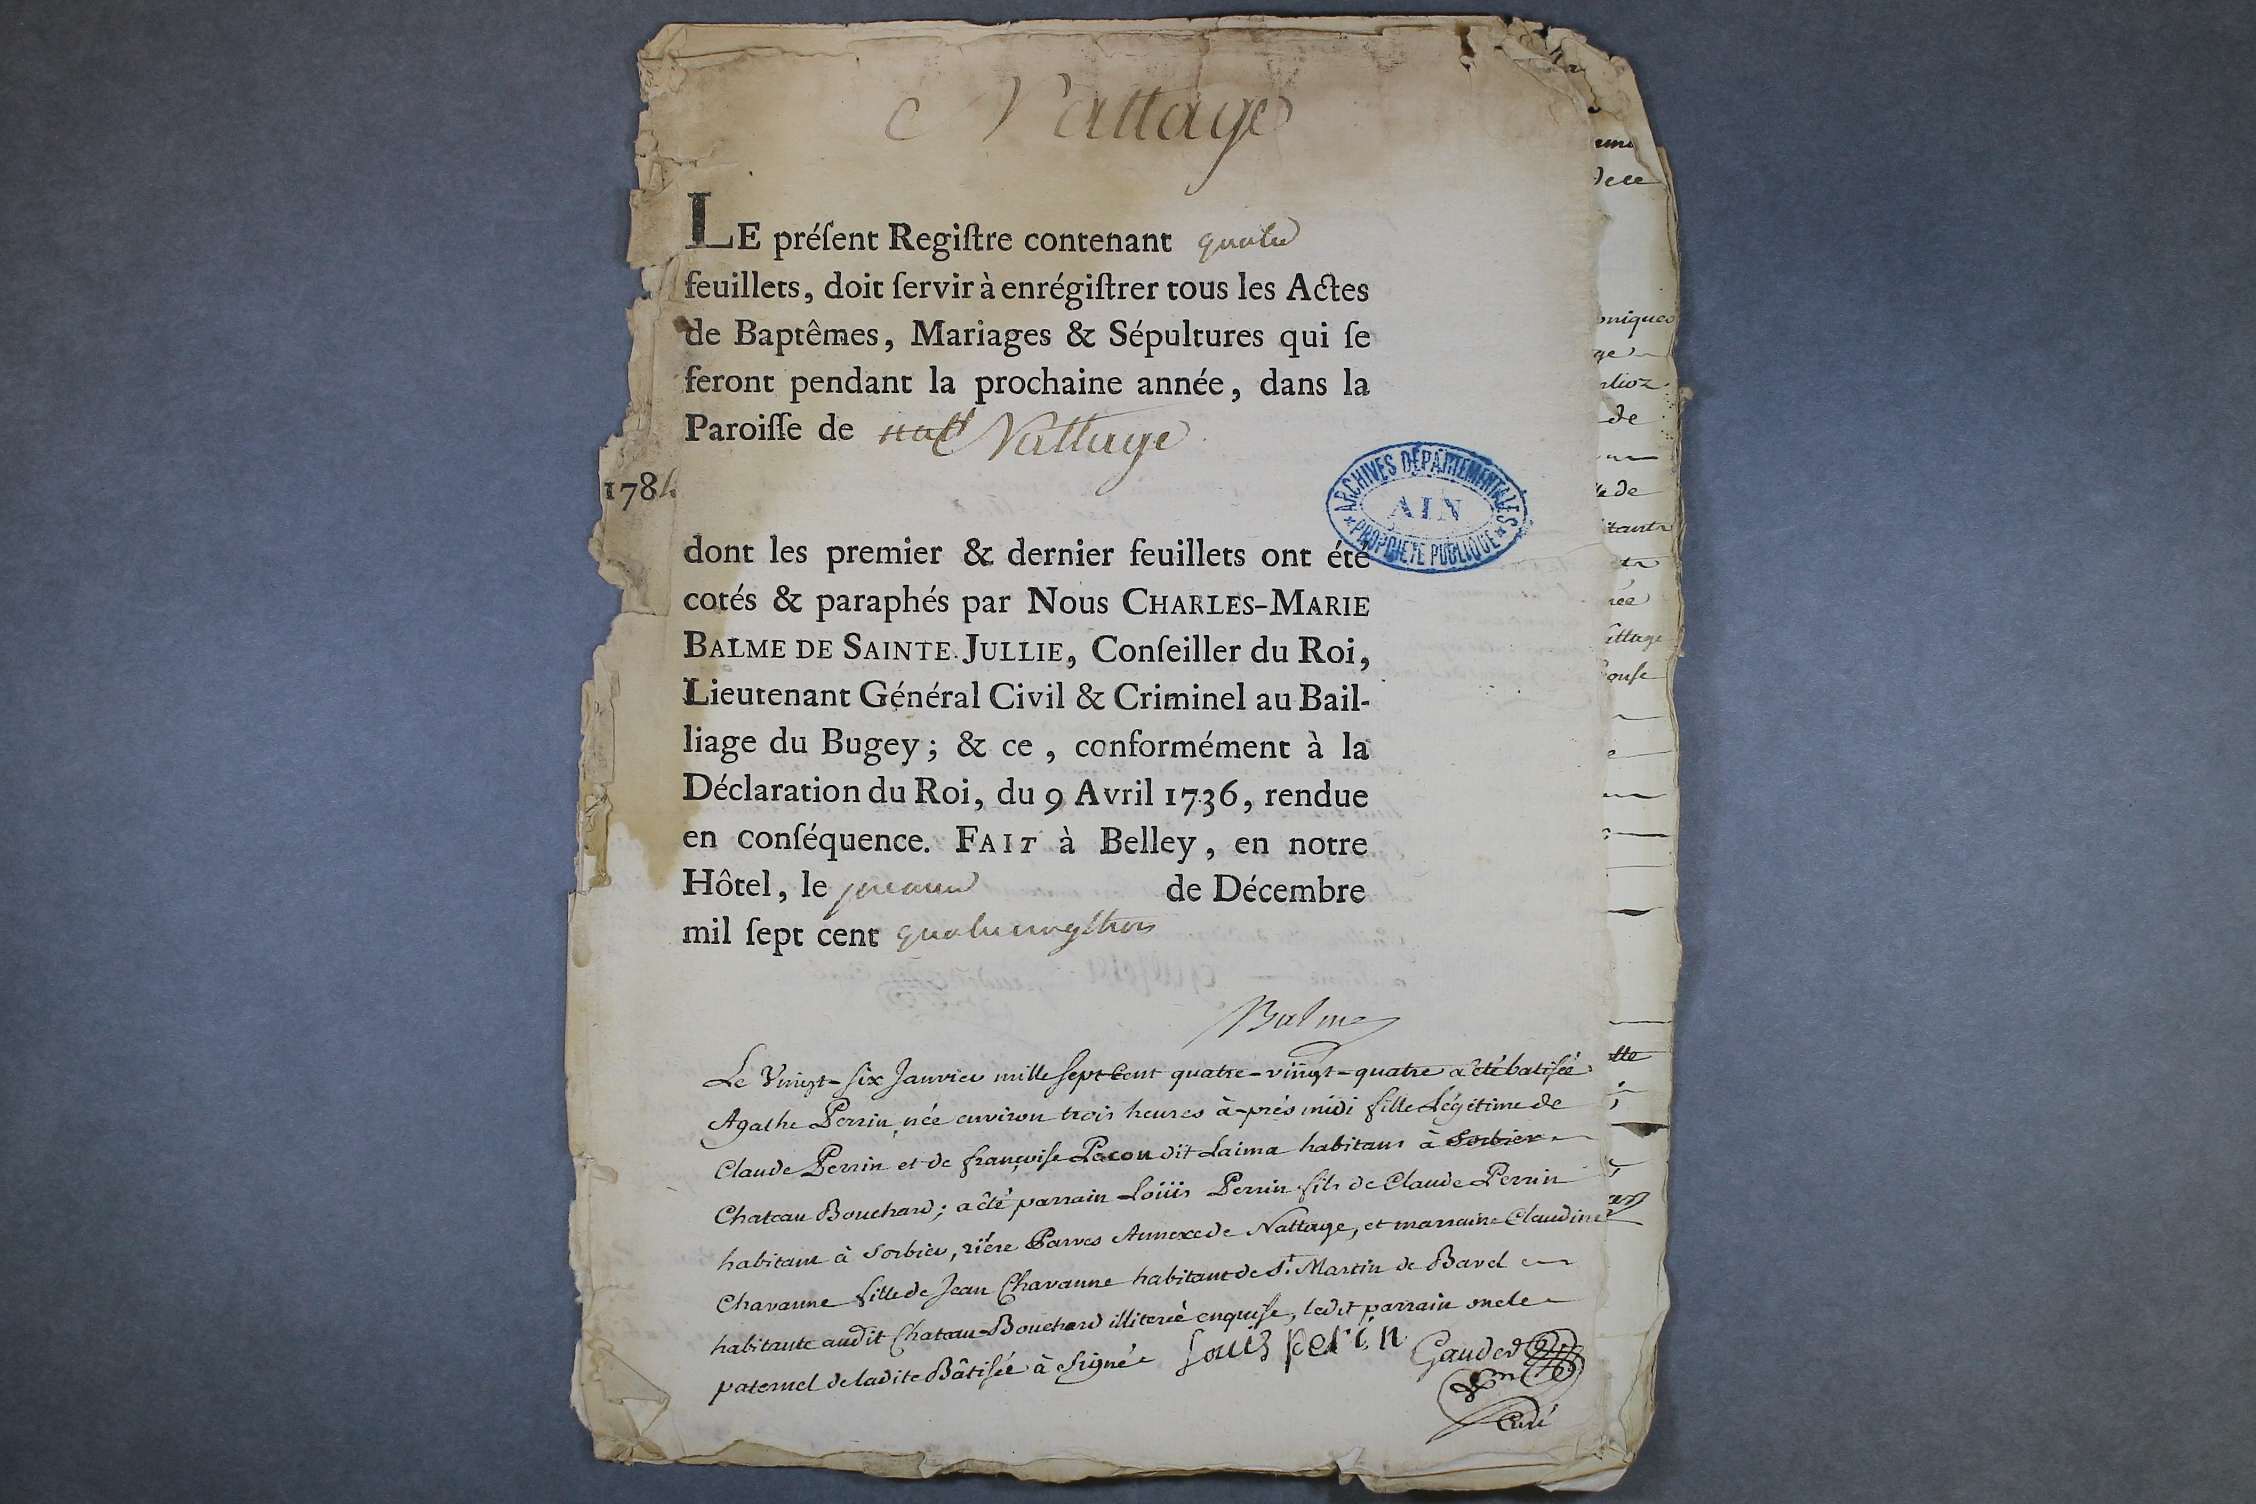 Nattage
LE préſent Regiſtre contenant quatre
feuillets, doit ſervir à enrégiſtrer tous les Actes
de Baptêmes, Mariages & Sépultures qui ſe
feront pendant la prochaine année, dans la
Paroiſſe de natt Nattage
1784
ARCHIVES DÉPARTEMENTALES
AIN
PROPRIÉTÉ PUBLIQUE
dont les premier & dernier feuillets ont été
cotés & paraphés par Nous CHARLES-MARIE
BALME DE SAINTE JULLIE, Conſeiller du Roi,
Lieutenant Général Civil & Criminel au Bail-
liage du Bugey; & ce, conformément à la
Déclaration du Roi, du 9 Avril 1736, rendue
en conſéquence. FAIT à Belley, en notre
Hôtel, le premier de Décembre
mil ſept cent quatrevingttrois
Balme
Le Vingt-six Janvier mille sept Cent quatre-vingt-quatre a été batisée
Agathe Perrin née environ trois heures à-prés midi fille Légitime de
Claude Perrin et de françoise Pacou dit Laima habitans à Sorbier
Chateau Bouchard; a êté parrain Loüis Perrin fils de Claude Perrin
habitant à Sorbier, riére Parves Annexe de Nattage, et marraine Claudine
Chavanne fille de Jean Chavanne habitant de St. Martin de Bavel
habitante audit Chateau-Bouchard illiterée enquise, ledit parrain oncle
paternel de ladite Bâtisée à signé louis perin Gauded
Curé
oniques
de
tte